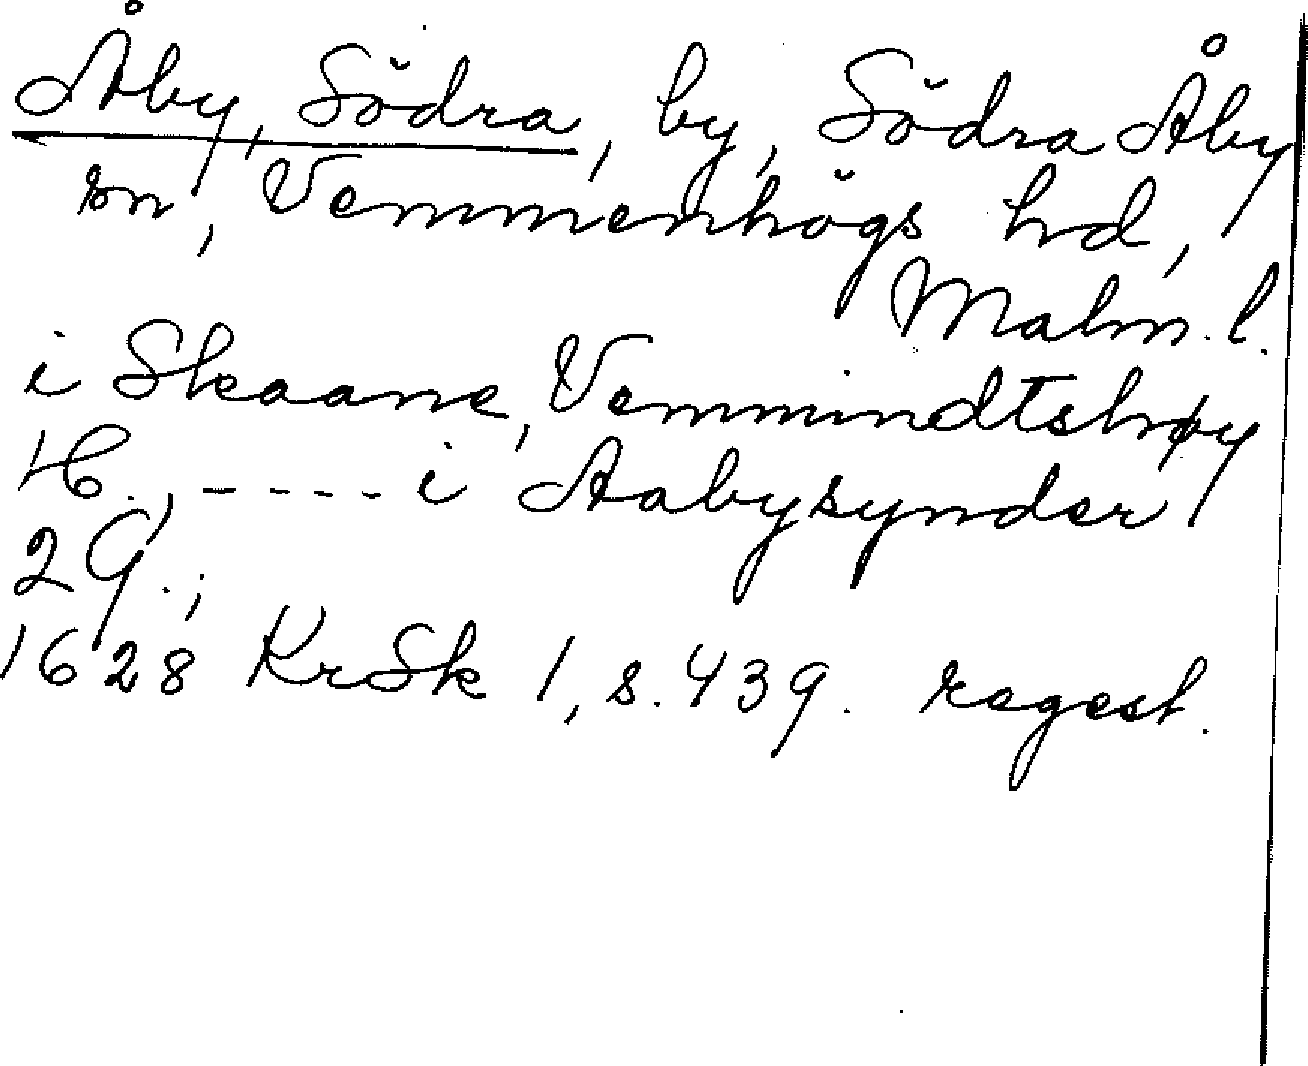 Åby, Södra, by, Södra Åby
sn, Vemmenhögs hd,
Malm. l.
i Skaane, Vemmindtshøy
H., ----- i Aabysynder
2 G.;
1628 KrSk 1, s. 439. regest.